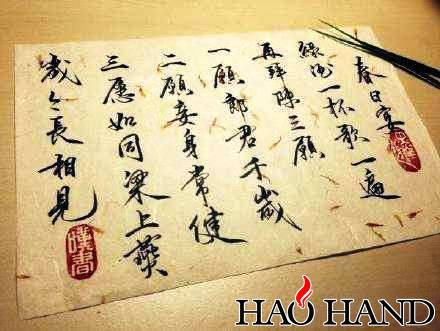 春日宴
綠酒一杯歌一遍
再拜陳三願
一願郎君千歲
二願妾身常健
三愿如同梁上燕
歲々長相見
HAO HAND